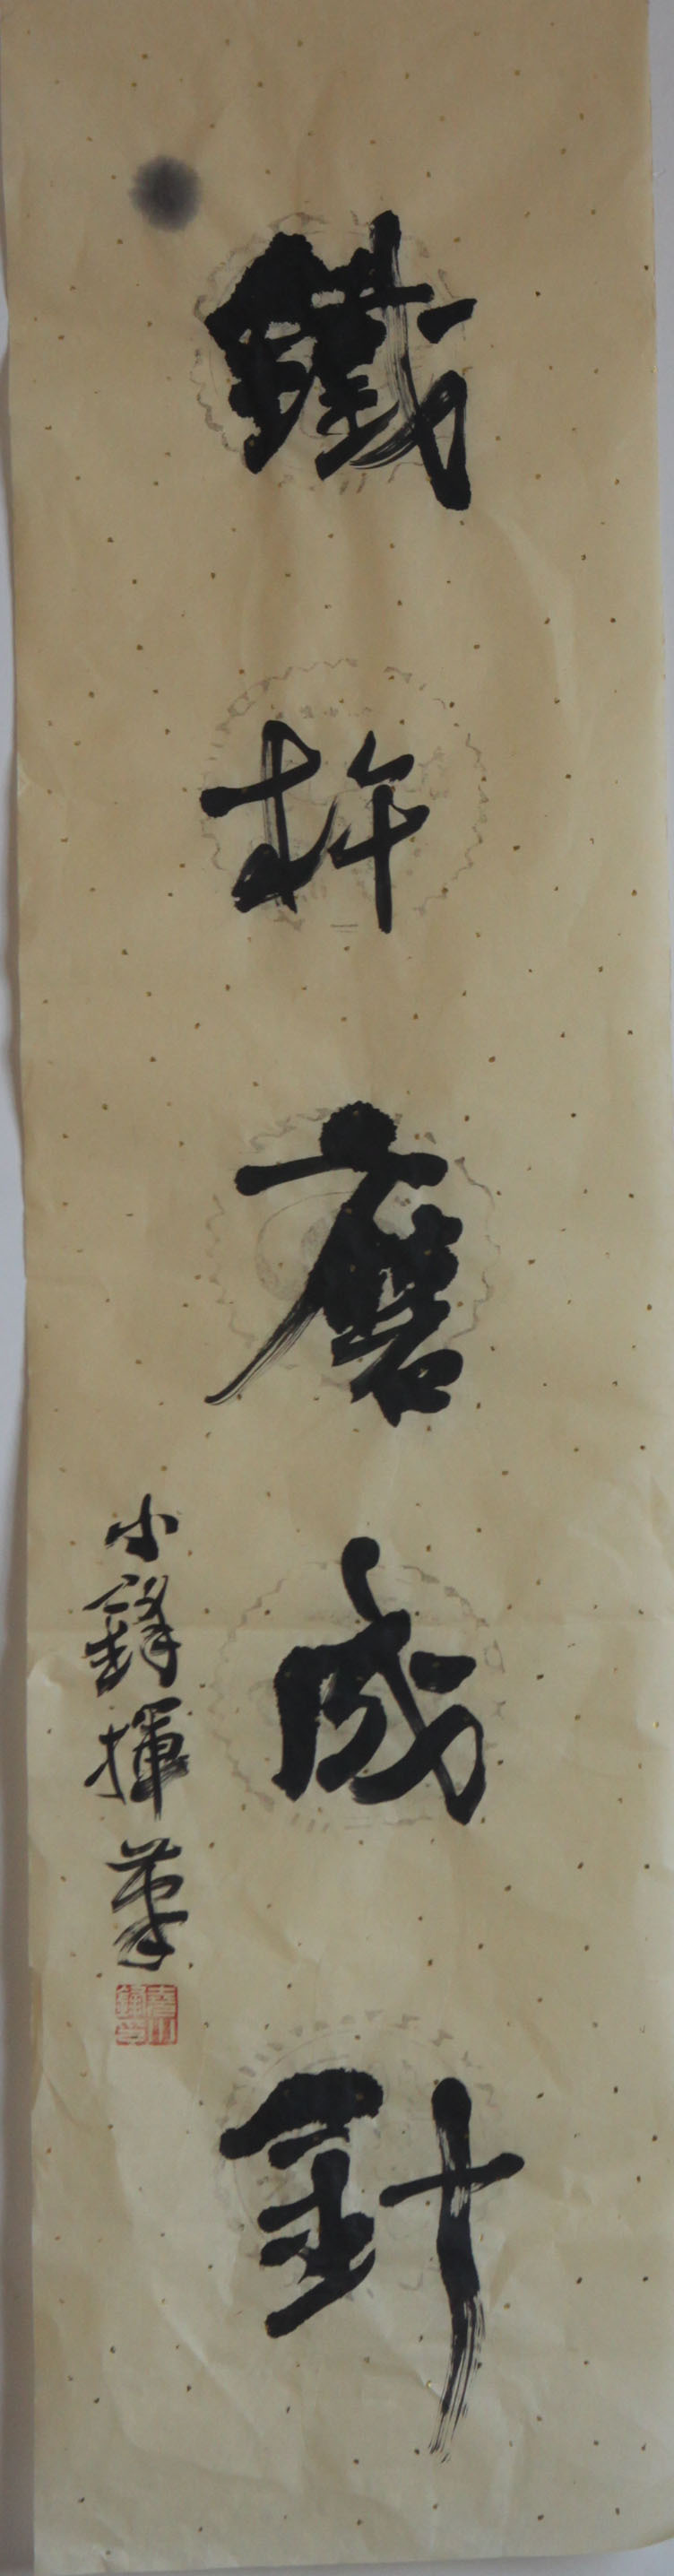 鐵杵磨成針
小鋒揮筆